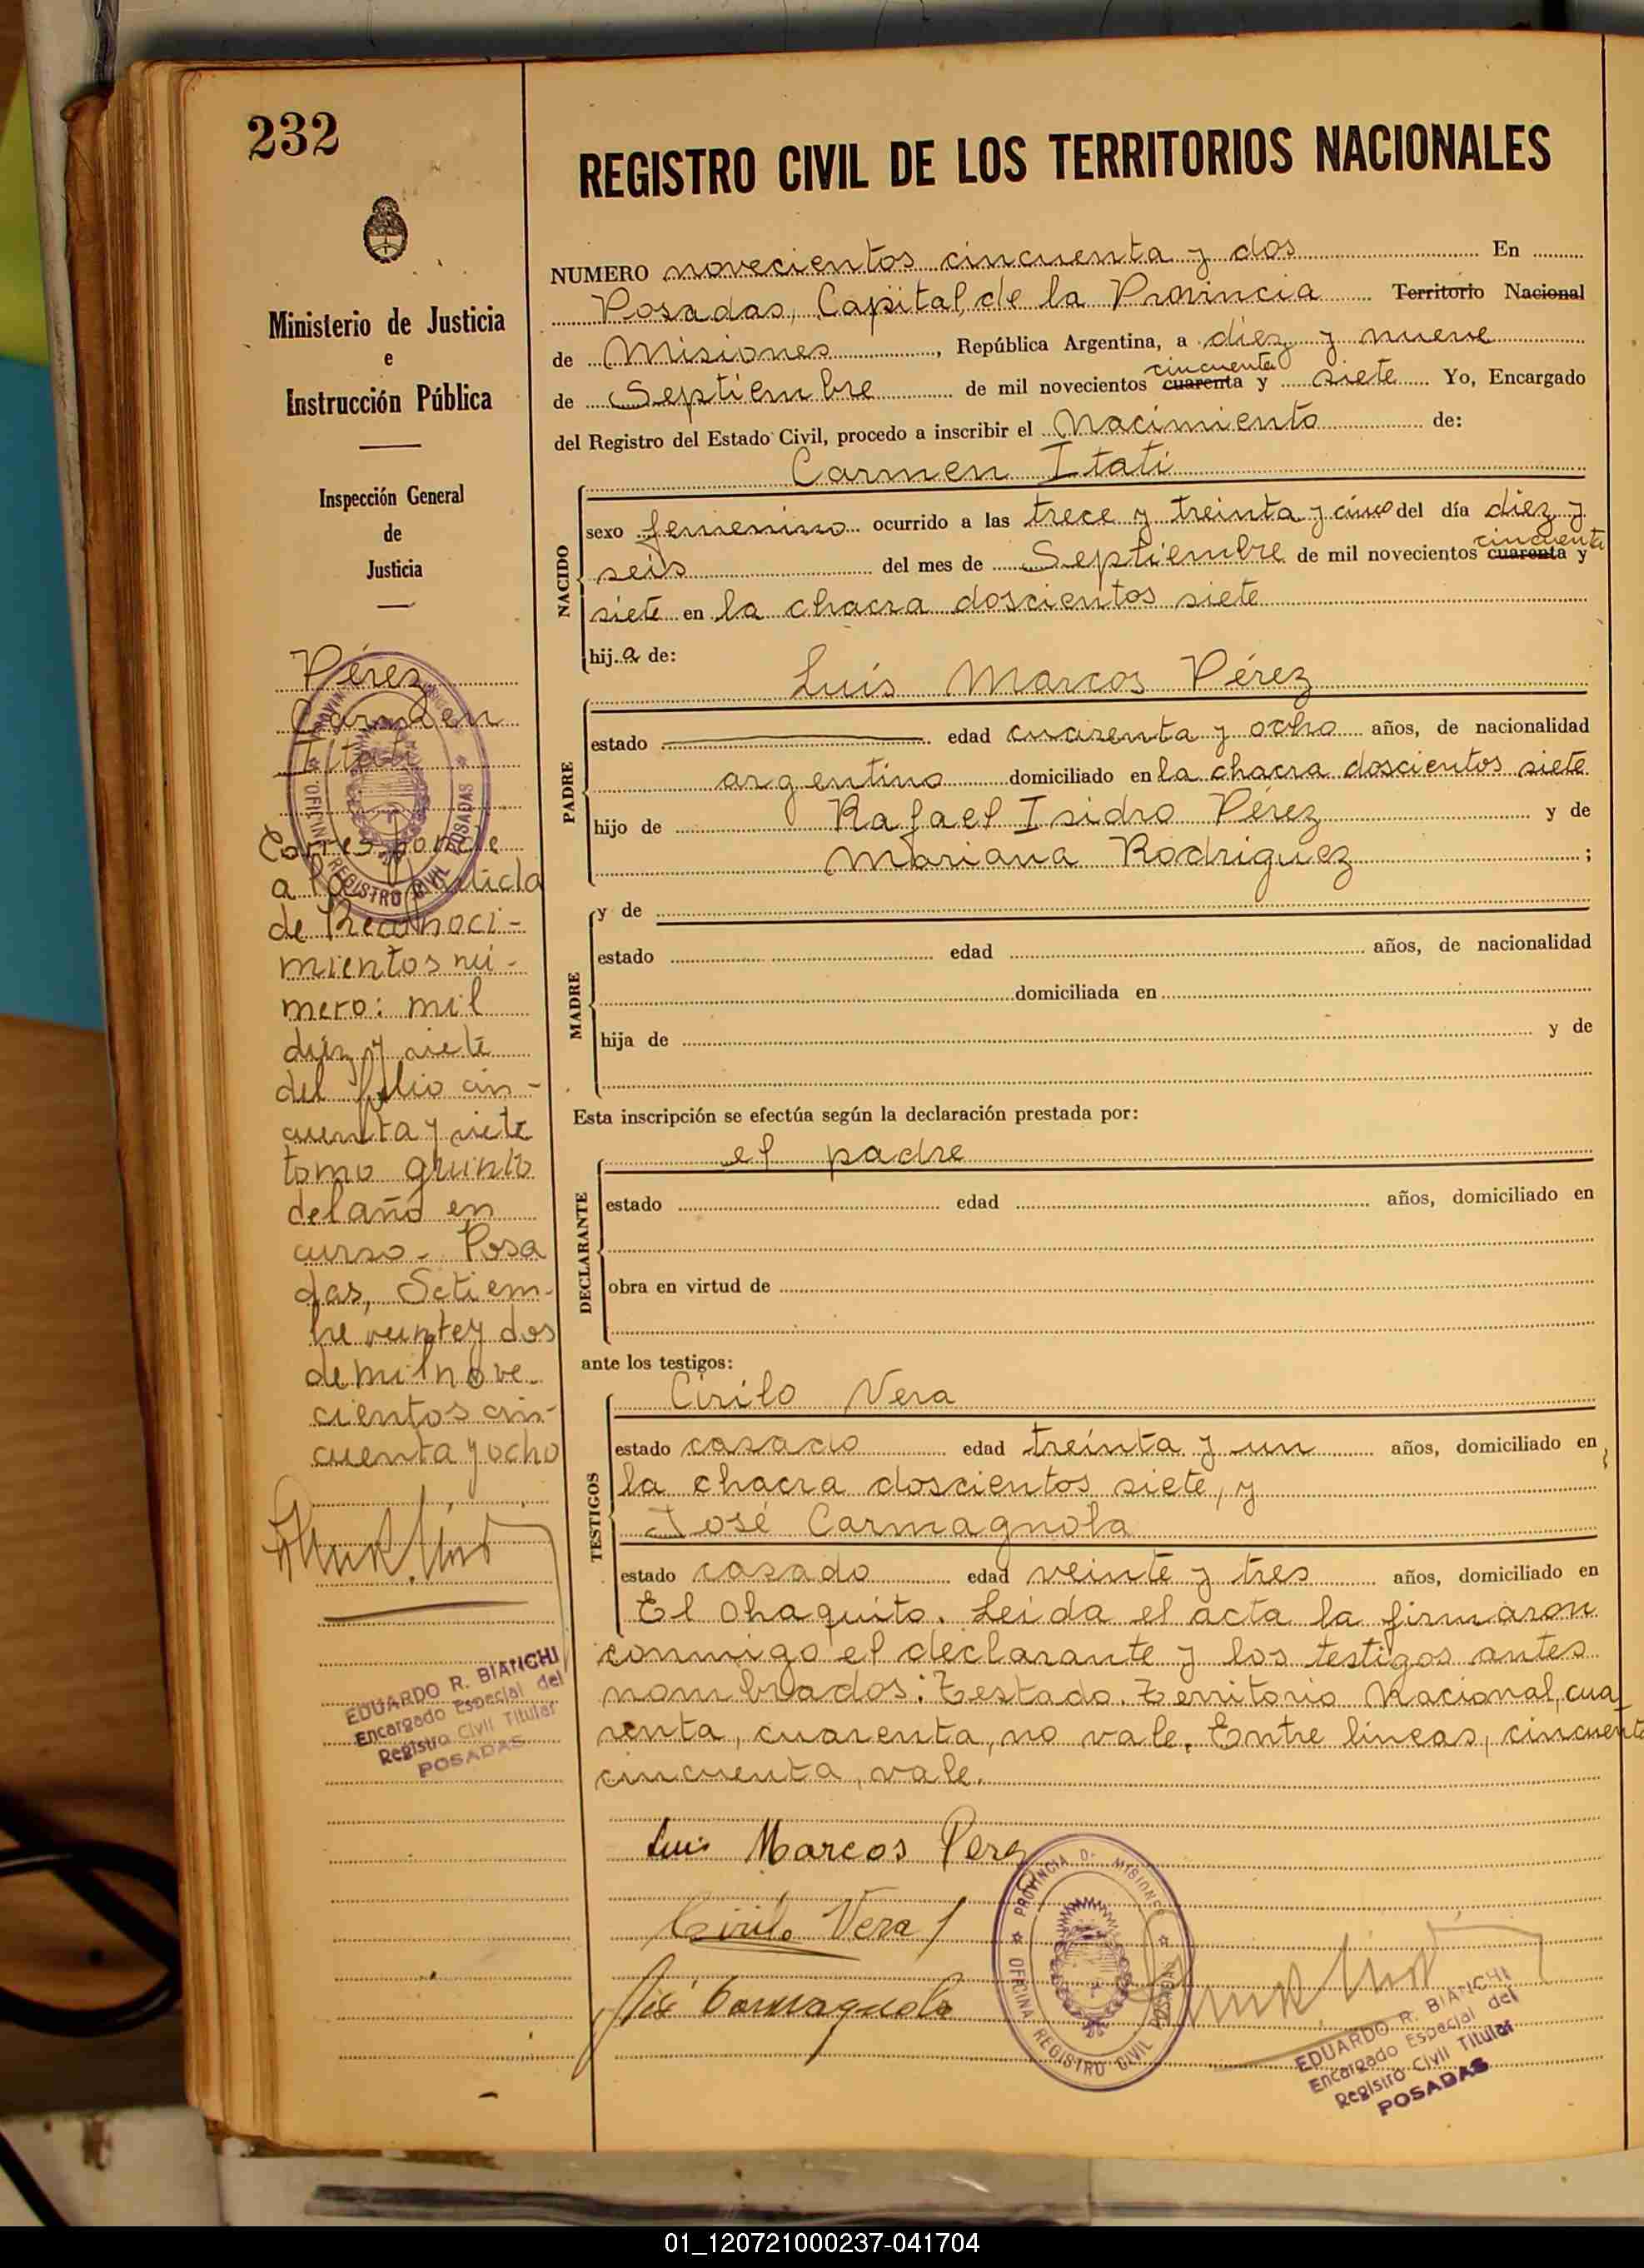 232
Ministerio de Justicia
e
Instrucción Pública
Inspección General
de
Justicia
Pérez
Carmen
Itatí
Corresponde
a la partida
de Reconoci-
mientos nú-
mero: mil
diez y siete
del folio cin-
cuenta y siete
tomo quinto
del año en
curso. Posa
das, Setiem-
bre veinte y dos
de mil nove-
cientos cin-
cuenta y ocho
EDUARDO R. BIANCHI
Encargado Especial del
Registro Civil Titular
POSADAS
REGISTRO CIVIL DE LOS TERRITORIOS NACIONALES
NUMERO novecientos cincuenta y dos En
Posadas, Capital de la Provincia Territorio Nacional
de Misiones, República Argentina, a diez y nueve
cincuenta
de Septiembre de mil novecientos cuarenta y siete Yo, Encargado
del Registro del Estado Civil, procedo a inscribir el Nacimiento de:
Carmen Itatí
NACIDO
sexo femenino ocurrido a las trece y treinta y cinco del día diez y
cincuenta
seis del mes de Septiembre de mil novecientos cuarenta y
siete en la chacra doscientos siete
hija de:
Luis Marcos Pérez
PADRE
estado edad cuarenta y ocho años, de nacionalidad
argentino domiciliado en la chacra doscientos siete
hijo de Rafael Isidro Pérez y de
Mariana Rodriguez ;
MADRE
y de
estado edad años, de nacionalidad
domiciliada en
hija de y de
Esta inscripción se efectúa según la declaración prestada por:
el padre
DECLARANTE
estado edad años, domiciliado en
obra en virtud de
ante los testigos:
Cirilo Vera
TESTIGOS
estado casado edad treinta y un años, domiciliado en
la chacra doscientos siete, y
José Carmagnola
estado casado edad veinte y tres años, domiciliado en
El Chaquito. Leída el acta la firmaron
conmigo el declarante y los testigos antes
nombrados: Testado. Territorio Nacional, cua
renta, cuarenta, no vale. Entre líneas, cincuenta
cincuenta, vale.
Luis Marcos Perez
Cirilo Vera
José Carmagnola
PROVINCIA DE MISIONES
OFICINA REGISTRO CIVIL POSADAS
EDUARDO R. BIANCHI
Encargado Especial del
Registro Civil Titular
POSADAS
01_120721000237-041704